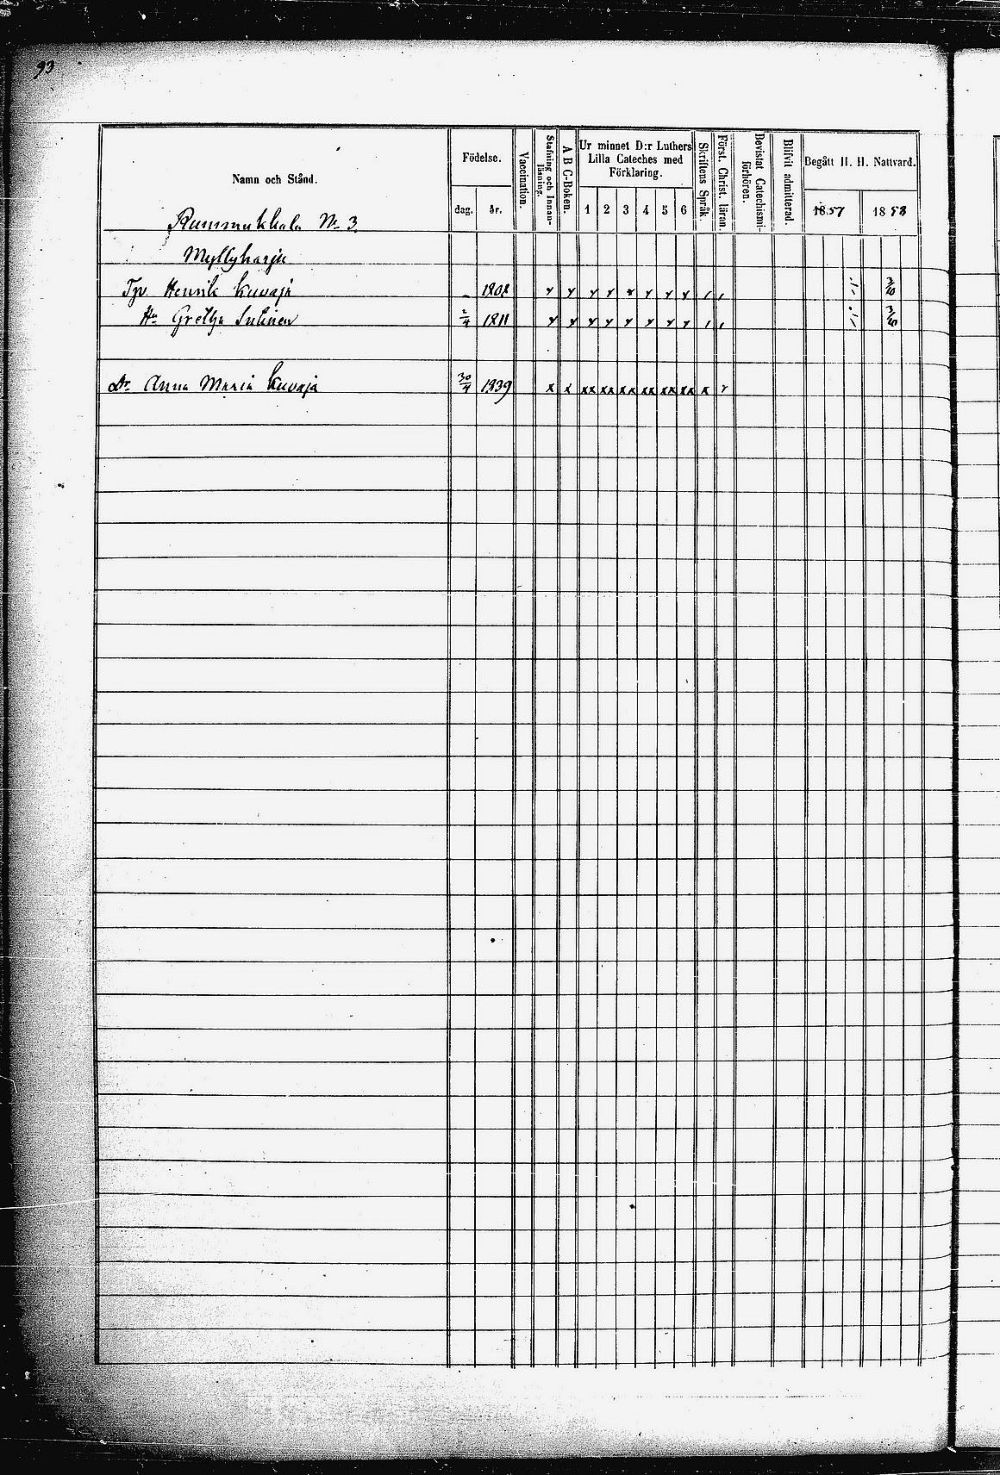 93
Namn och Stånd.
Födelse.
dag.
år.
Vaccination.
Stafning och Innan-
läsning.
A B C-Boken.
Ur minnet D:r Luthers
Lilla Cateches med
Förklaring.
1 2 3 4 5 6
Skriftens Språk.
Först. Christ. läran.
Bevistat Catechismi-
förhören.
Blifvit admitterad.
Begått H. H. Nattvard.
1857 1858
Rummukkala N. 3
Myllyharju
Henrik Kuvaja 1802
Hu Gretha Sutinen 1811
Dr Anna Maria Kuvaja 30/4 1839